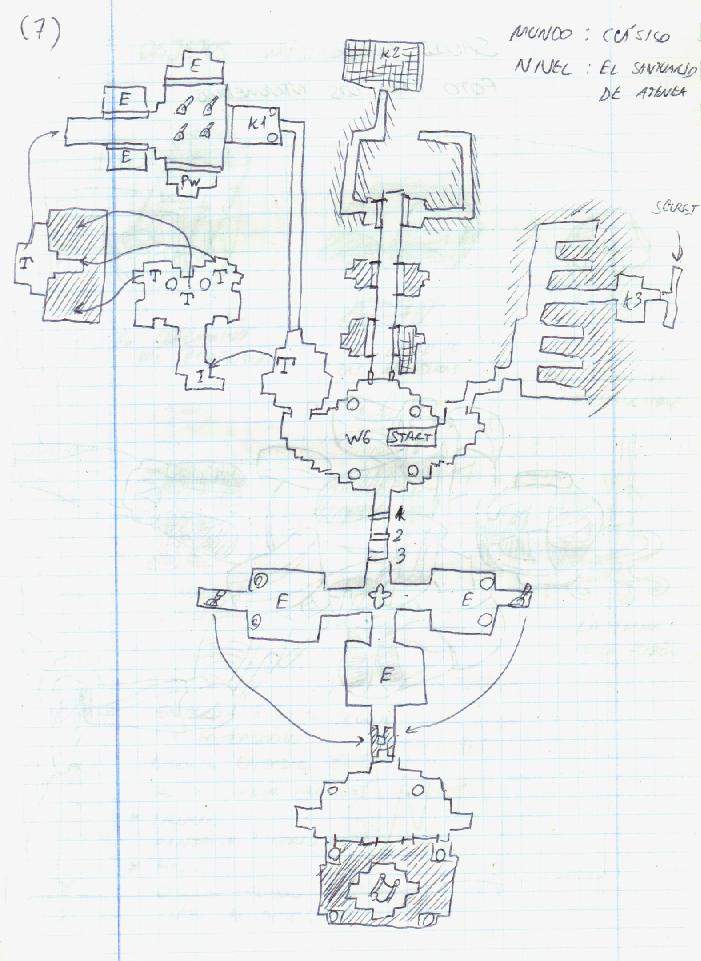 (7)
MUNDO : CLÁSICO
NIVEL : EL SANTUARIO
DE ATENEA
K2
E
E
K1
E
PW
SECRET
T
T
T
T
K3
T
T
W6
START
1
2
3
E
E
E